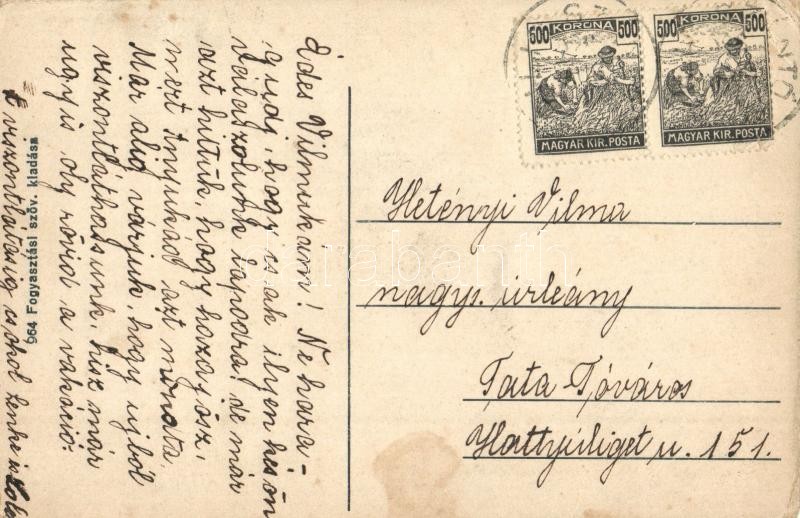 Édes Vilmukám! Ne hara-
gudj, hogy csak ilyen későn
válaszolunk lapodra, de már
azt hittük, hogy hazajösz,
mert Anyukád azt mondta.
Már alig várjuk, hogy ujból
viszontláthassunk, hisz már
ugyis oly rövid a vakáció.
A viszontlátásig csókol Lenke és Lola
964 Fogyasztási szöv. kiadása
500 KORONA 500
MAGYAR KIR. POSTA
500 KORONA 500
MAGYAR KIR. POSTA
Hetényi Vilma
nagys. úrleány
Tata-Tóváros
Hattyúliget u. 151.
darabanth